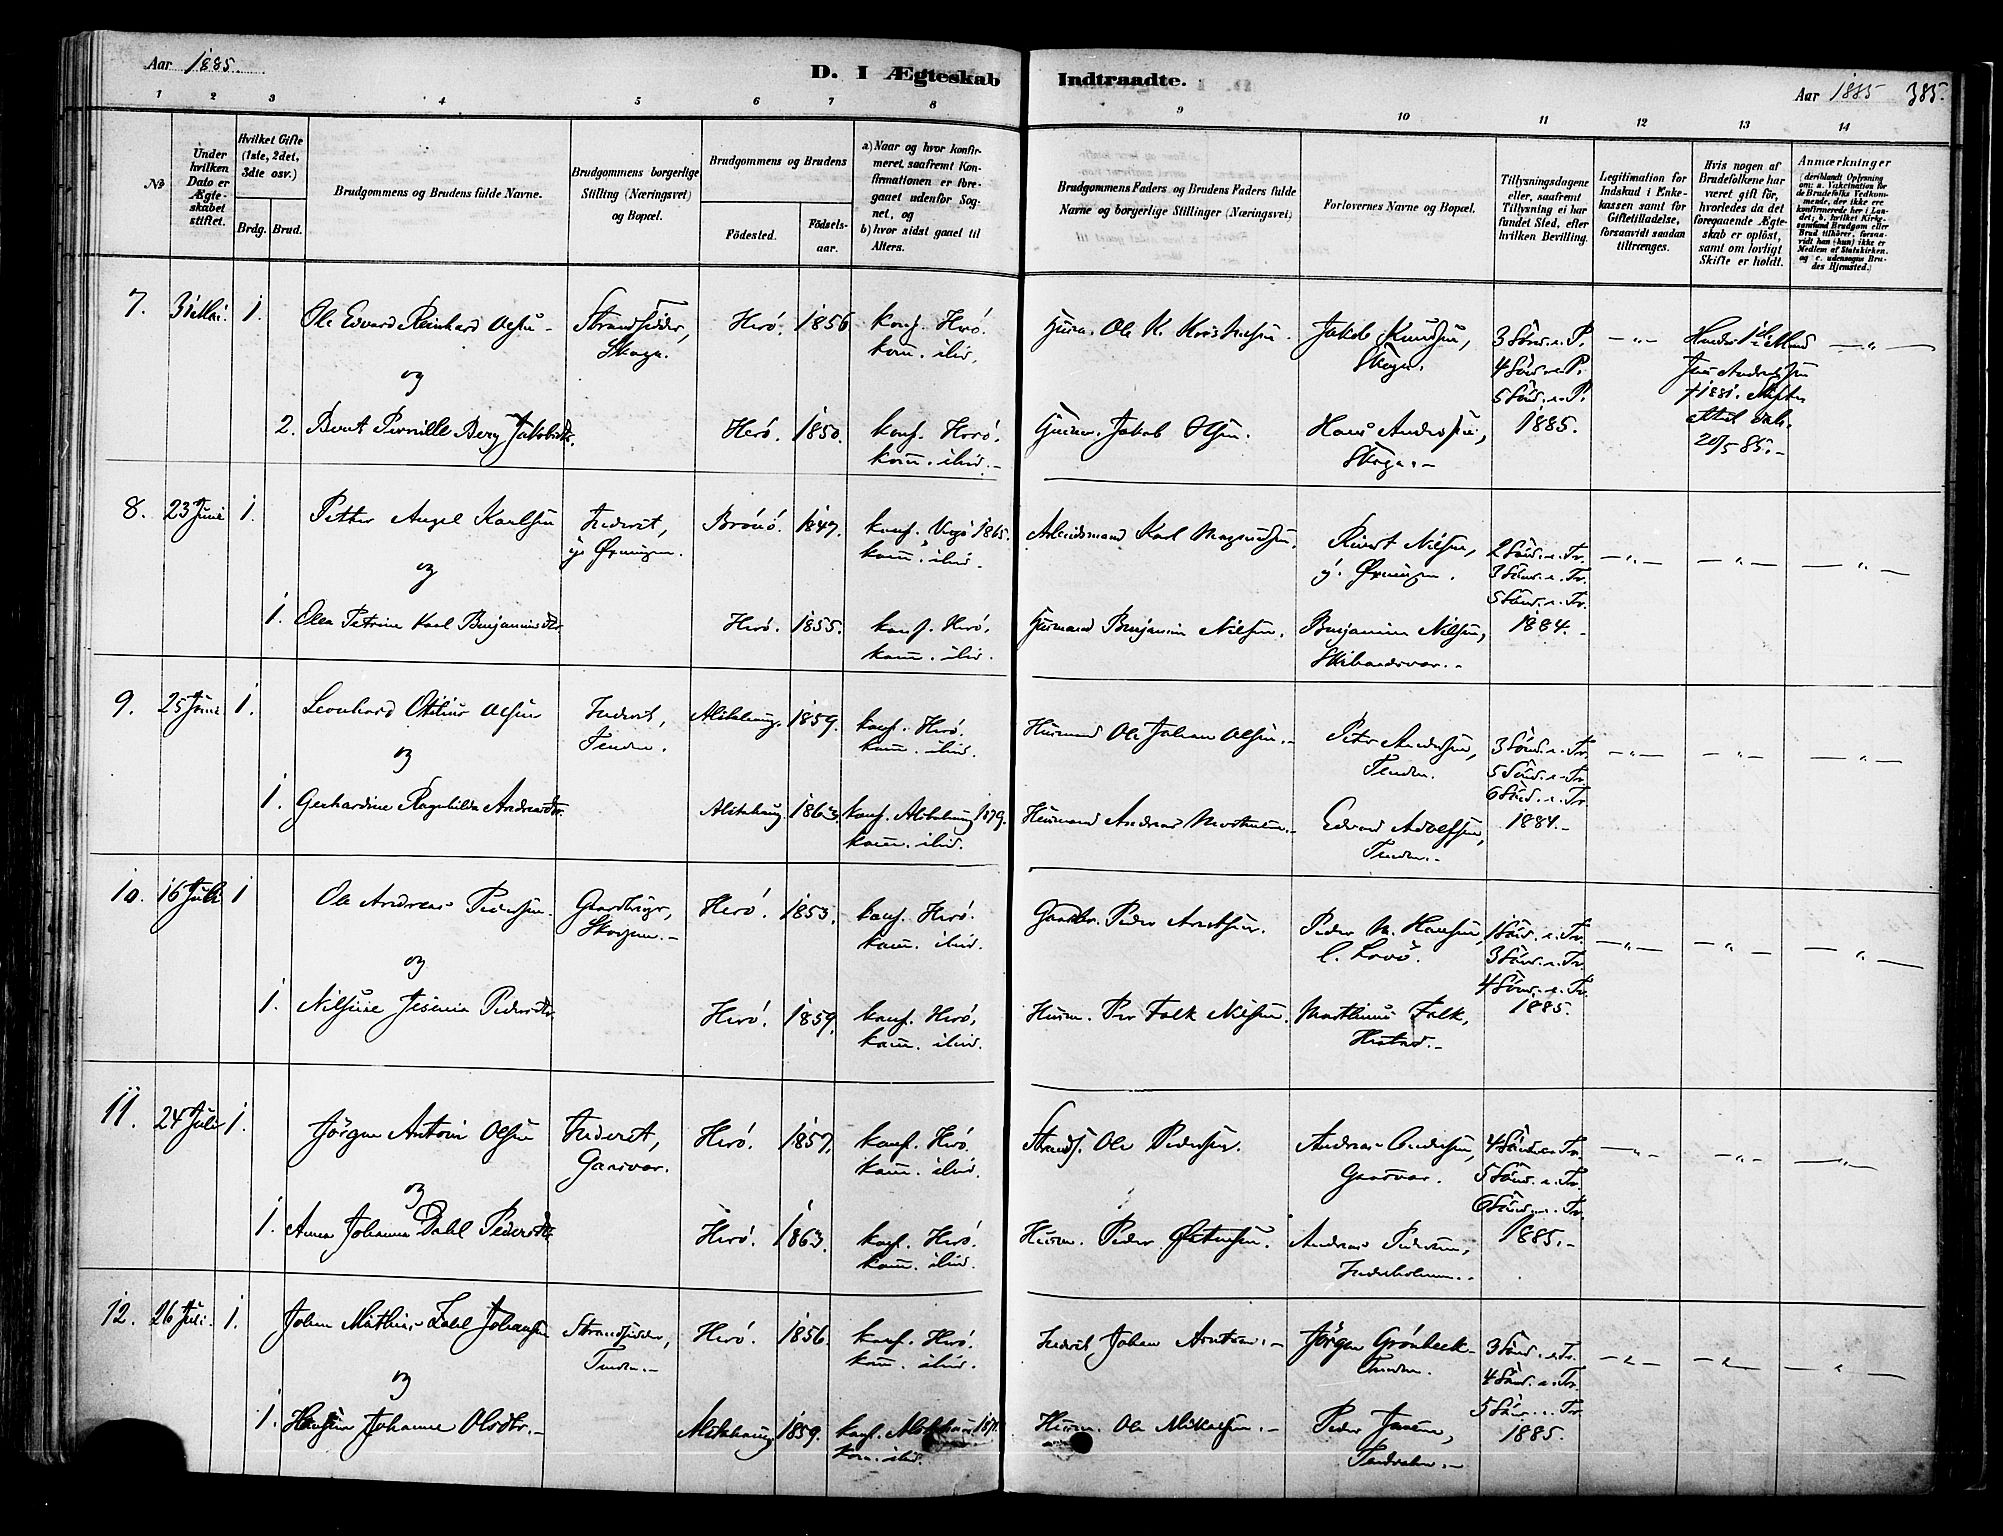 Aar 1885.
D. I Ægteskab Indtraadte.
Aar 1885 385.
1 2 3 4 5 6 7 8 9 10 11 12 13 14
No
Under hvilken Dato er Ægteskabet stiftet.
Hvilket Gifte (1ste, 2det, 3die osv.)
Brdg. Brud.
Brudgommens og Brudens fulde Navne.
Brudgommens borgerlige Stilling (Næringsvei) og Bopæl.
Brudgommens og Brudens
Fødested. Fødselsaar.
a) Naar og hvor konfirmeret, saafremt Konfirmationen er foregaaet udenfor Sognet, og
b) hvor sidst gaaet til Alters.
Brudgommens Faders og Brudens Faders fulde Navne og borgerlige Stillinger (Næringsvei)
Forlovernes Navne og Bopæl.
Tillysningsdagene eller, saafremt Tillysning ei har fundet Sted, efter hvilken Bevilling.
Legitimation for Indskud i Enkekassen samt for Giftetilladelse, forsaavidt saadan tiltrænges.
Hvis nogen af Brudefolkene har været gift før, hvorledes da det foregaaende Ægteskab er opløst, samt om lovligt Skifte er holdt.
Anmærkninger (deriblandt Oplysning om: a. Vakcination for de Brudefolks Vedkommende, der ikke ere konfirmerede her i Landet; b. hvilket Kirkesamfund Brudgom eller Brud tilhører, forsaavidt han (hun) ikke er Medlem af Statskirken, og c. udensogns Brudes Hjemsted.)
7. 31 Mai 1. Ole Edvard Reinhard Olsen - Strandsidder, Herø. 1856 konf. Herø. Husm. Ole K. Kristensen Jakob Knudsen, 3 Sønd. e. P. — " —
Skaga. kom. ilid. Skaga. 4 Sønd. e. P.
og 5 Sønd. e. P. †1881. Skifte
2. Berit Pernille Berg Jakobsdtr. Herø. 1850. konf. Herø. Husm. Jakob Olsen. Hans Andersen, 1885.
kom. ilid. - Skaga. - 20/5 85. -
8. 23 Juni 1. Petter Angel Karlsen Inderst, Brønø. 1847. konf. Vegø 1865. Arbeidsmand Karl Magnussen. Eivert Nilsen, 2 Sønd. e. Tr. — " — — " — — " —
y. Øxningen. kom. ilid. y. Øxningen. 3 Sønd. e. Tr.
og 5 Sønd. e. Tr.
1. Olea Petrine Karl Benjaminsdtr. Herø. 1855. konf. Herø. Husmand Benjamin Nilsen. Benjamin Nilsen, 1884. -
kom. ilid. Skibaadsvær. -
9. 25 Juni 1. Leonhard Ottilius Olsen Inderst, Alstahaug. 1859. konf. Herø. Husmand Ole Johan Olsen. - Peter Andersen, 3 Sønd. e. Tr. — " — — " — — " —
Tenden. kom. ilid. Tenden. 5 Sønd. e. Tr.
og 6 Sønd. e. Tr.
1. Gerhardine Ragnhilda Andreasdtr. Alstahaug 1863. konf. Alstahaug 1879. Husmand Andreas Mortensen. - Edvard Adolfsen, 1884. -
kom. ilid. Tenden. -
10. 16 Juli 1 Ole Andreas Pedersen. Gaardbruger, Herø. 1853. konf. Herø. Gaardbr. Peder Arntsen. Peder M. Hansen, 1 Sønd. e. Tr. — " — — " — — " —
Skorpen. - kom. ilid. l. Lovø. 3 Sønd. e. Tr.
og 4 Sønd. e. Tr.
1. Nilsine Jesine Pedersdtr. Herø. 1859. konf. Herø. Husm. Per Falk Nilsen. Marthinus Falk, 1885.
kom. ilid. Hestad. -
11. 24 Juli 1. Jørgen Anton Olsen Inderst, Herø. 1857. konf. Herø. Strands. Ole Pedersen. Andreas Andersen, 4 Sønd. e. Tr. — " — — " — — " —
Gaasvær. kom. ilid. Gaasvær. 5 Sønd. e. Tr.
og 6 Sønd. e. Tr.
1. Anna Johanna Dahl Pedersdtr. Herø. 1863. konf. Herø. Husm. Peder Østensen. Andreas Pedersen, 1885. -
kom. ilid. Inderholmen. -
12. 26 Juli. 1. Johan Mathias Zahl Johansen Strandsidder, Herø. 1856. konf. Herø. Inderst Johan Arntsen. - Jørgen Grønbeck 3 Sønd. e. Tr. — " — — " — — " —
Tenden. - kom. ilid. Tenden. 4 Sønd. e. Tr.
og 5 Sønd. e. Tr.
1. Hansine Johanna Olsdtr. - Alstahaug 1859. konf. Alstahaug Husm. Ole Mikalsen. - Peder Jensen, 1885.
kom. ilid.